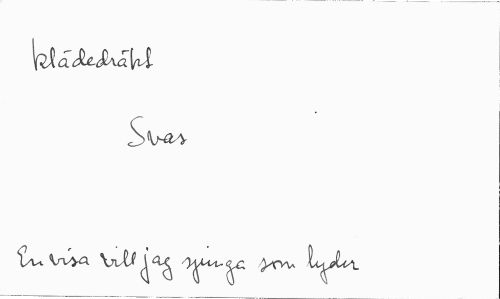 klädedräkt
Svas
En visa vill jag sjunga som lyder